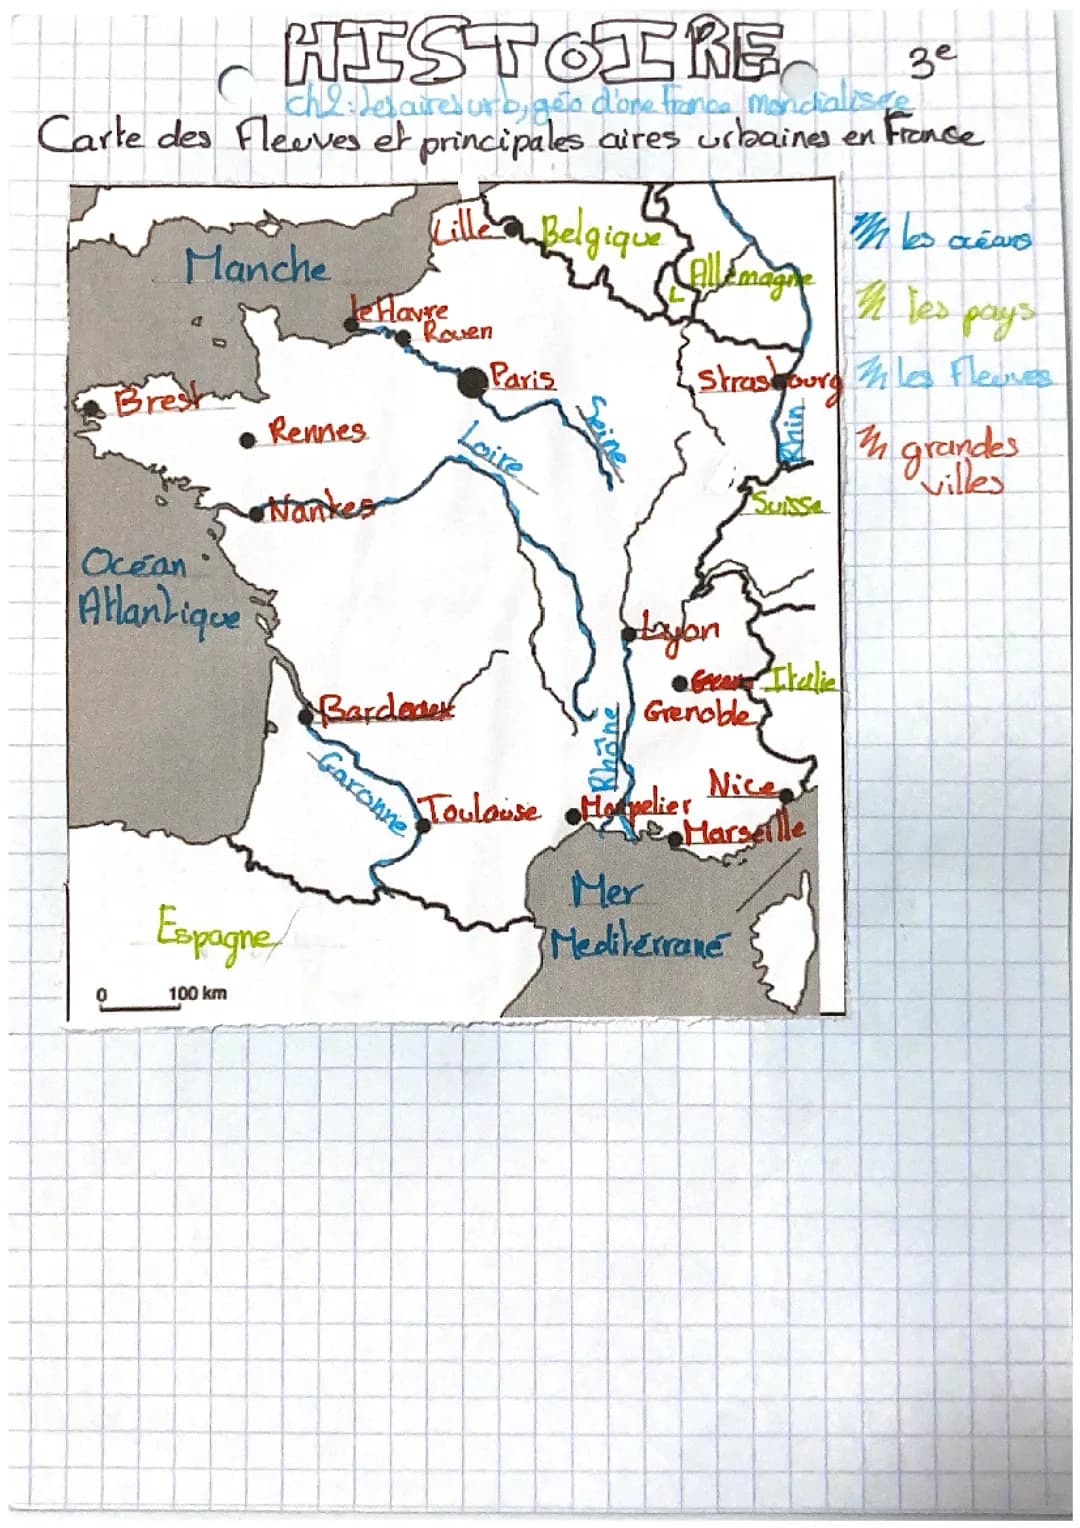 HISTOIRE
3e
ch2: les aires urb, géo d'one France mondialisée
Carte des Fleuves et principales aires urbaines en France
Lille
Belgique
les océans
Manche
Allemagne
L
les pays
le Havre
Rouen
Paris
Strasbourg
les Fleuves
Brest
Rennes
Loire
Seine
Rhin
grandes
villes
Nantes
Suisse
Océan
Atlantique
Lyon
Italie
Bardeaux
Grenoble
Garonne
Rhône
Toulouse
Monpelier
Nice
Marseille
Mer
Mediterrané
Espagne
0 100 km